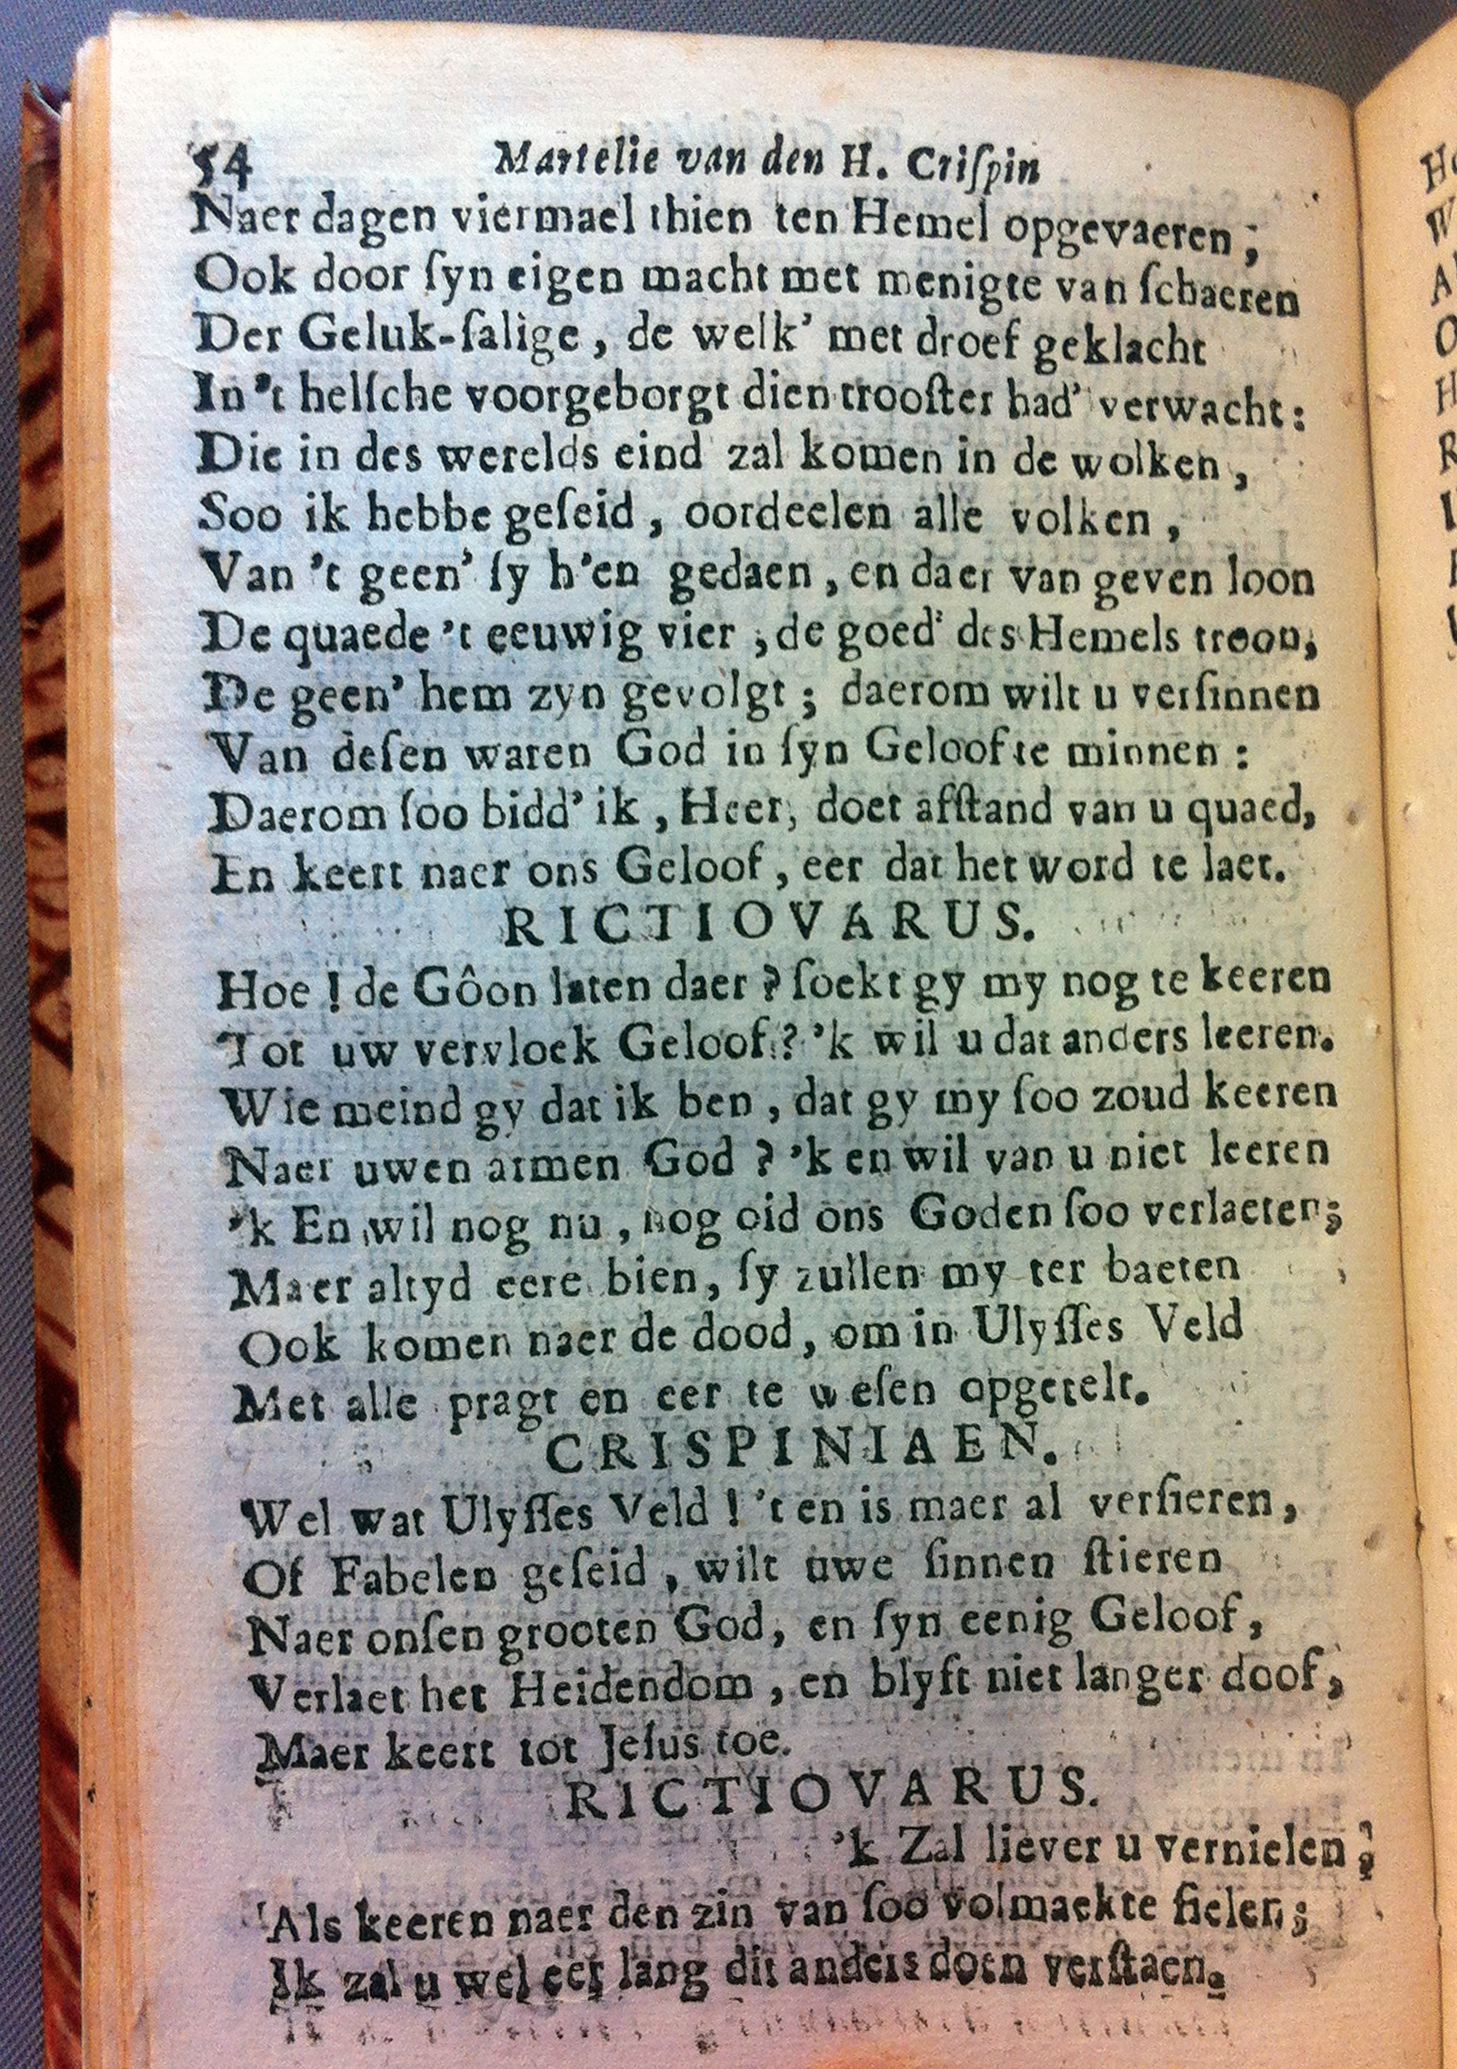 54 Martelie van den H. Criſpin
Naer dagen viermael thien ten Hemel opgevaeren;
Ook door ſyn eigen macht met menigte van ſchaeren
Der Geluk-ſalige, de welk' met droef geklacht
In 't helſche voorgeborgt dien trooſter had' verwacht:
Die in des werelds eind zal komen in de wolken,
Soo ik hebbe geſeid, oordeelen alle volken,
Van 't geen' ſy h'en gedaen, en daer van geven loon
De quaede 't eeuwig vier, de goed' des Hemels troon,
De geen' hem zyn gevolgt; daerom wilt u verſinnen
Van deſen waren God in ſyn Geloofte minnen:
Daerom ſoo bidd' ik, Heer, doet afſtand van u quaed,
En keert naer ons Geloof, eer dat het word te laet.
RICTIOVARUS.
Hoe! de Gôon laten daer? ſoekt gy my nog te keeren
Tot uw vervloek Geloof? 'k wil u dat anders leeren.
Wie meind gy dat ik ben, dat gy my ſoo zoud keeren
Naer uwen armen God? 'k en wil van u niet leeren
'k En wil nog nu, nog oid ons Goden ſoo verlaeten;
Maer altyd eere bien, ſy zullen my ter baeten
Ook komen naer de dood, om in Ulyſſes Veld
Met alle pragt en eer te weſen opgetelt.
CRISPINIAEN.
Wel wat Ulyſſes Veld! 't en is maer al verſieren,
Of Fabelen geſeid, wilt uwe ſinnen ſtieren
Naer onſen grooten God, en ſyn eenig Geloof,
Verlaet het Heidendom, en blyft niet langer doof,
Maer keert tot Jeſus toe.
RICTIOVARUS.
'k Zal liever u vernielen,
Als keeren naer den zin van ſoo volmaekte fielen;
Ik zal u wel eer lang dit anders doen verſtaen.